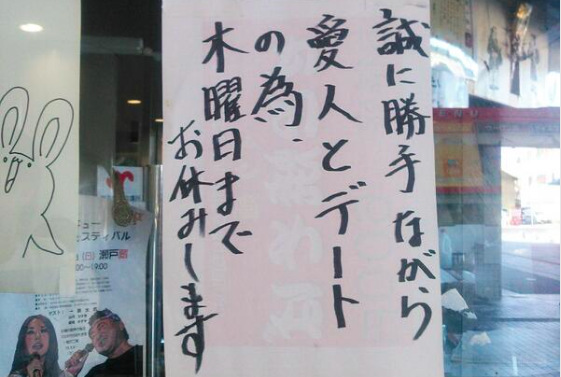 誠に勝手ながら
愛人とデート
の為、
木曜日まで
お休みします
ュー
ェスティバル
(日) 瀬戸蔵
19:00
MENU